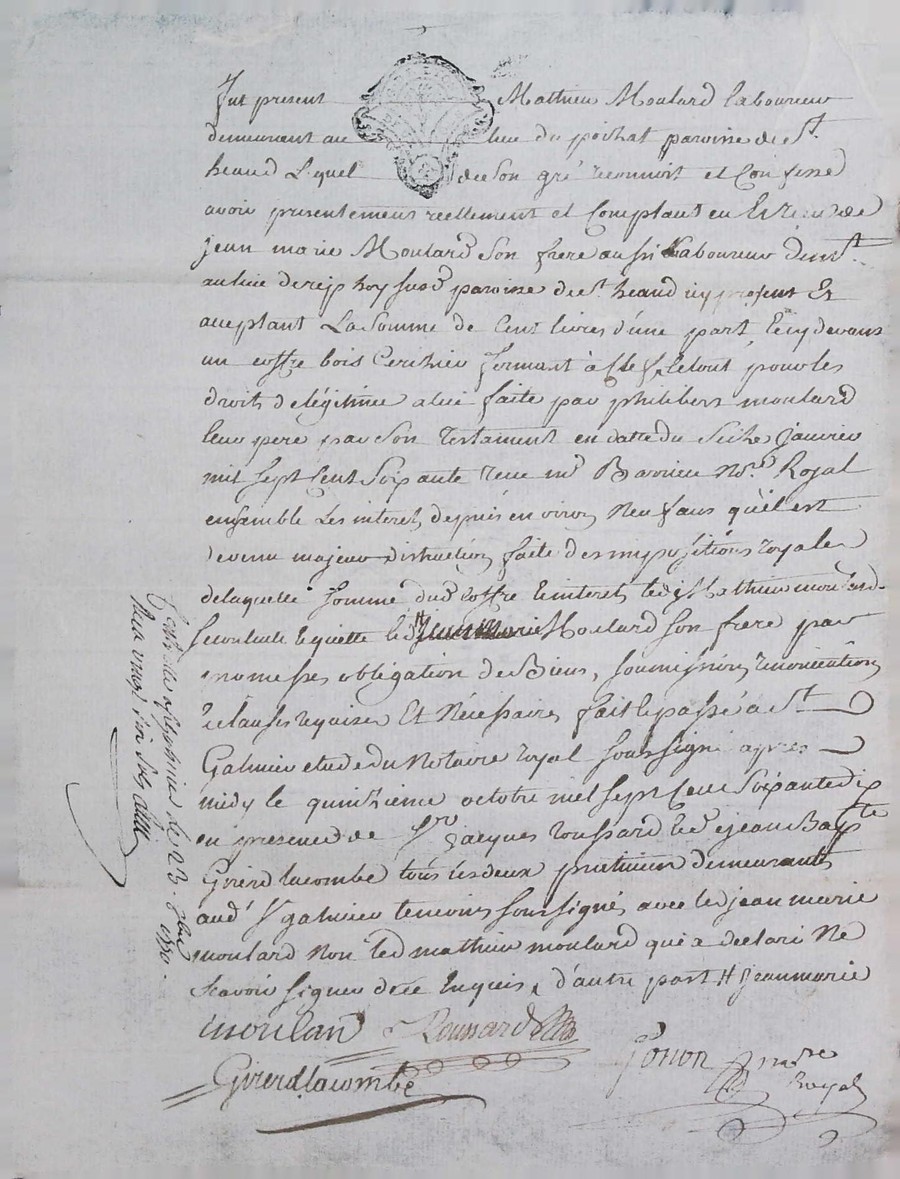 Fut present Mathieu Moulard laboureur
demeurant au lieu du pochat paroisse de St
heand Lequel de son gré reconnoit et Confesse
avoir presentement reellement et Comptant eu Et reçu de
jean marie Moulard son frere aussi Laboureur demt
au lieu de susd paroisse de st heand icy present Et
acceptant La somme de Cent livres d'une part, Ecy devant
un coffre bois Cerisier formant Le tout pour les
droits de légitime a lui faite par philibert moulard
leur pere par son Testament en datte du Janvier
mil sept Cent Soixante recu me Barrieu Nore Royal
ensemble Les interets depuis environ Neuf ans qu'il est
devenu majeur distraction faite des impositions royales
de laquelle somme dud coffre & interets led Mathieu moulard
se contente & quitte led Moulard son frere par
promesses obligation de Biens, soumissions renonciations
& clauses requises Et Nécessaires fait & passé a St
Galmier etude du Notaire royal soussigné apres
midy le quinzieme octobre mil sept Cent Soixante dix
en presence de sr jacques roussard & de sr jean Bapte
Girerd lacombe tous les deux praticiens demeurants
aud St galmier temoins soussignés avec led jean marie
moulard Non led mathieu moulard qui a declaré Ne
scavoir signer de ce Enquis, d'autre part # jean marie
moulard Roussard
Girerd lacombe Gonon nore
Royal
Conlé a St galmier le 23. 8bre 1770.
Recu vingt six sols